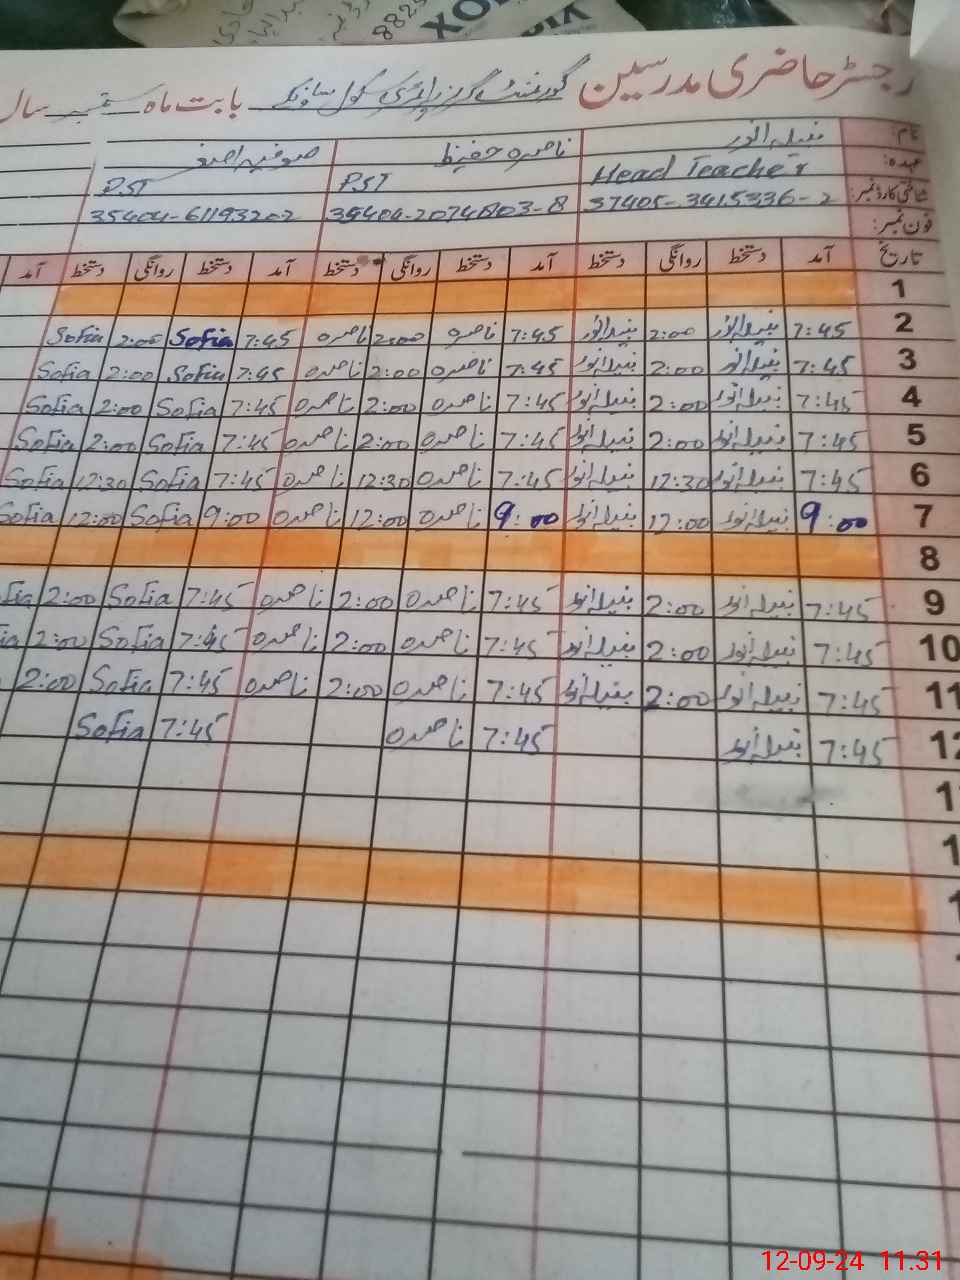 رجسٹر حاضری مدرسین گورنمنٹ گرلز پرائمری سکول بابت ماہ ستمبر سال
نام: نبیلہ انور ناصرہ حفیظ صوفیہ اصغر
عہدہ: Head Teacher PST PST
شناختی کارڈ نمبر: 37405-3415336-2 35404-61193202
فون نمبر:
تاریخ آمد دستخط روانگی دستخط آمد دستخط روانگی دستخط آمد دستخط روانگی دستخط آمد
1
2 7:45 نبیلہ انور 2:00 نبیلہ انور 7:45 ناصرہ 2:00 ناصرہ 7:45 Sofia 2:00 Sofia
3 7:45 نبیلہ انور 2:00 نبیلہ انور 7:45 ناصرہ 2:00 ناصرہ 7:45 Sofia 2:00 Sofia
4 7:45 نبیلہ انور 2:00 نبیلہ انور 7:45 ناصرہ 2:00 ناصرہ 7:45 Sofia 2:00 Sofia
5 7:45 نبیلہ انور 2:00 نبیلہ انور 7:45 ناصرہ 2:00 ناصرہ 7:45 Sofia 2:00 Sofia
6 7:45 نبیلہ انور 12:30 نبیلہ انور 7:45 ناصرہ 12:30 ناصرہ 7:45 Sofia 12:30 Sofia
7 9:00 نبیلہ انور 12:00 نبیلہ انور 9:00 ناصرہ 12:00 ناصرہ 9:00 Sofia 12:00 Sofia
8
9 7:45 نبیلہ انور 2:00 نبیلہ انور 7:45 ناصرہ 2:00 ناصرہ 7:45 Sofia 2:00 fia
10 7:45 نبیلہ انور 2:00 نبیلہ انور 7:45 ناصرہ 2:00 ناصرہ 7:45 Sofia 2:00 ia
11 7:45 نبیلہ انور 2:00 نبیلہ انور 7:45 ناصرہ 2:00 ناصرہ 7:45 Sofia 2:00
12 7:45 نبیلہ انور 7:45 ناصرہ 7:45 Sofia
1
1
1
12-09-24 11.31